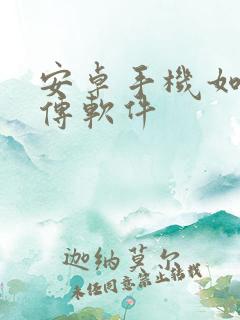 安卓手機如
傳軟件
迦納莫尔
未经同意禁止转载